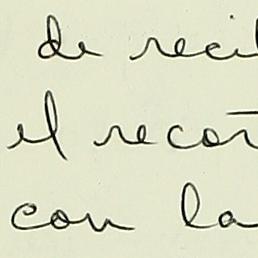 de reci
el recor
con la